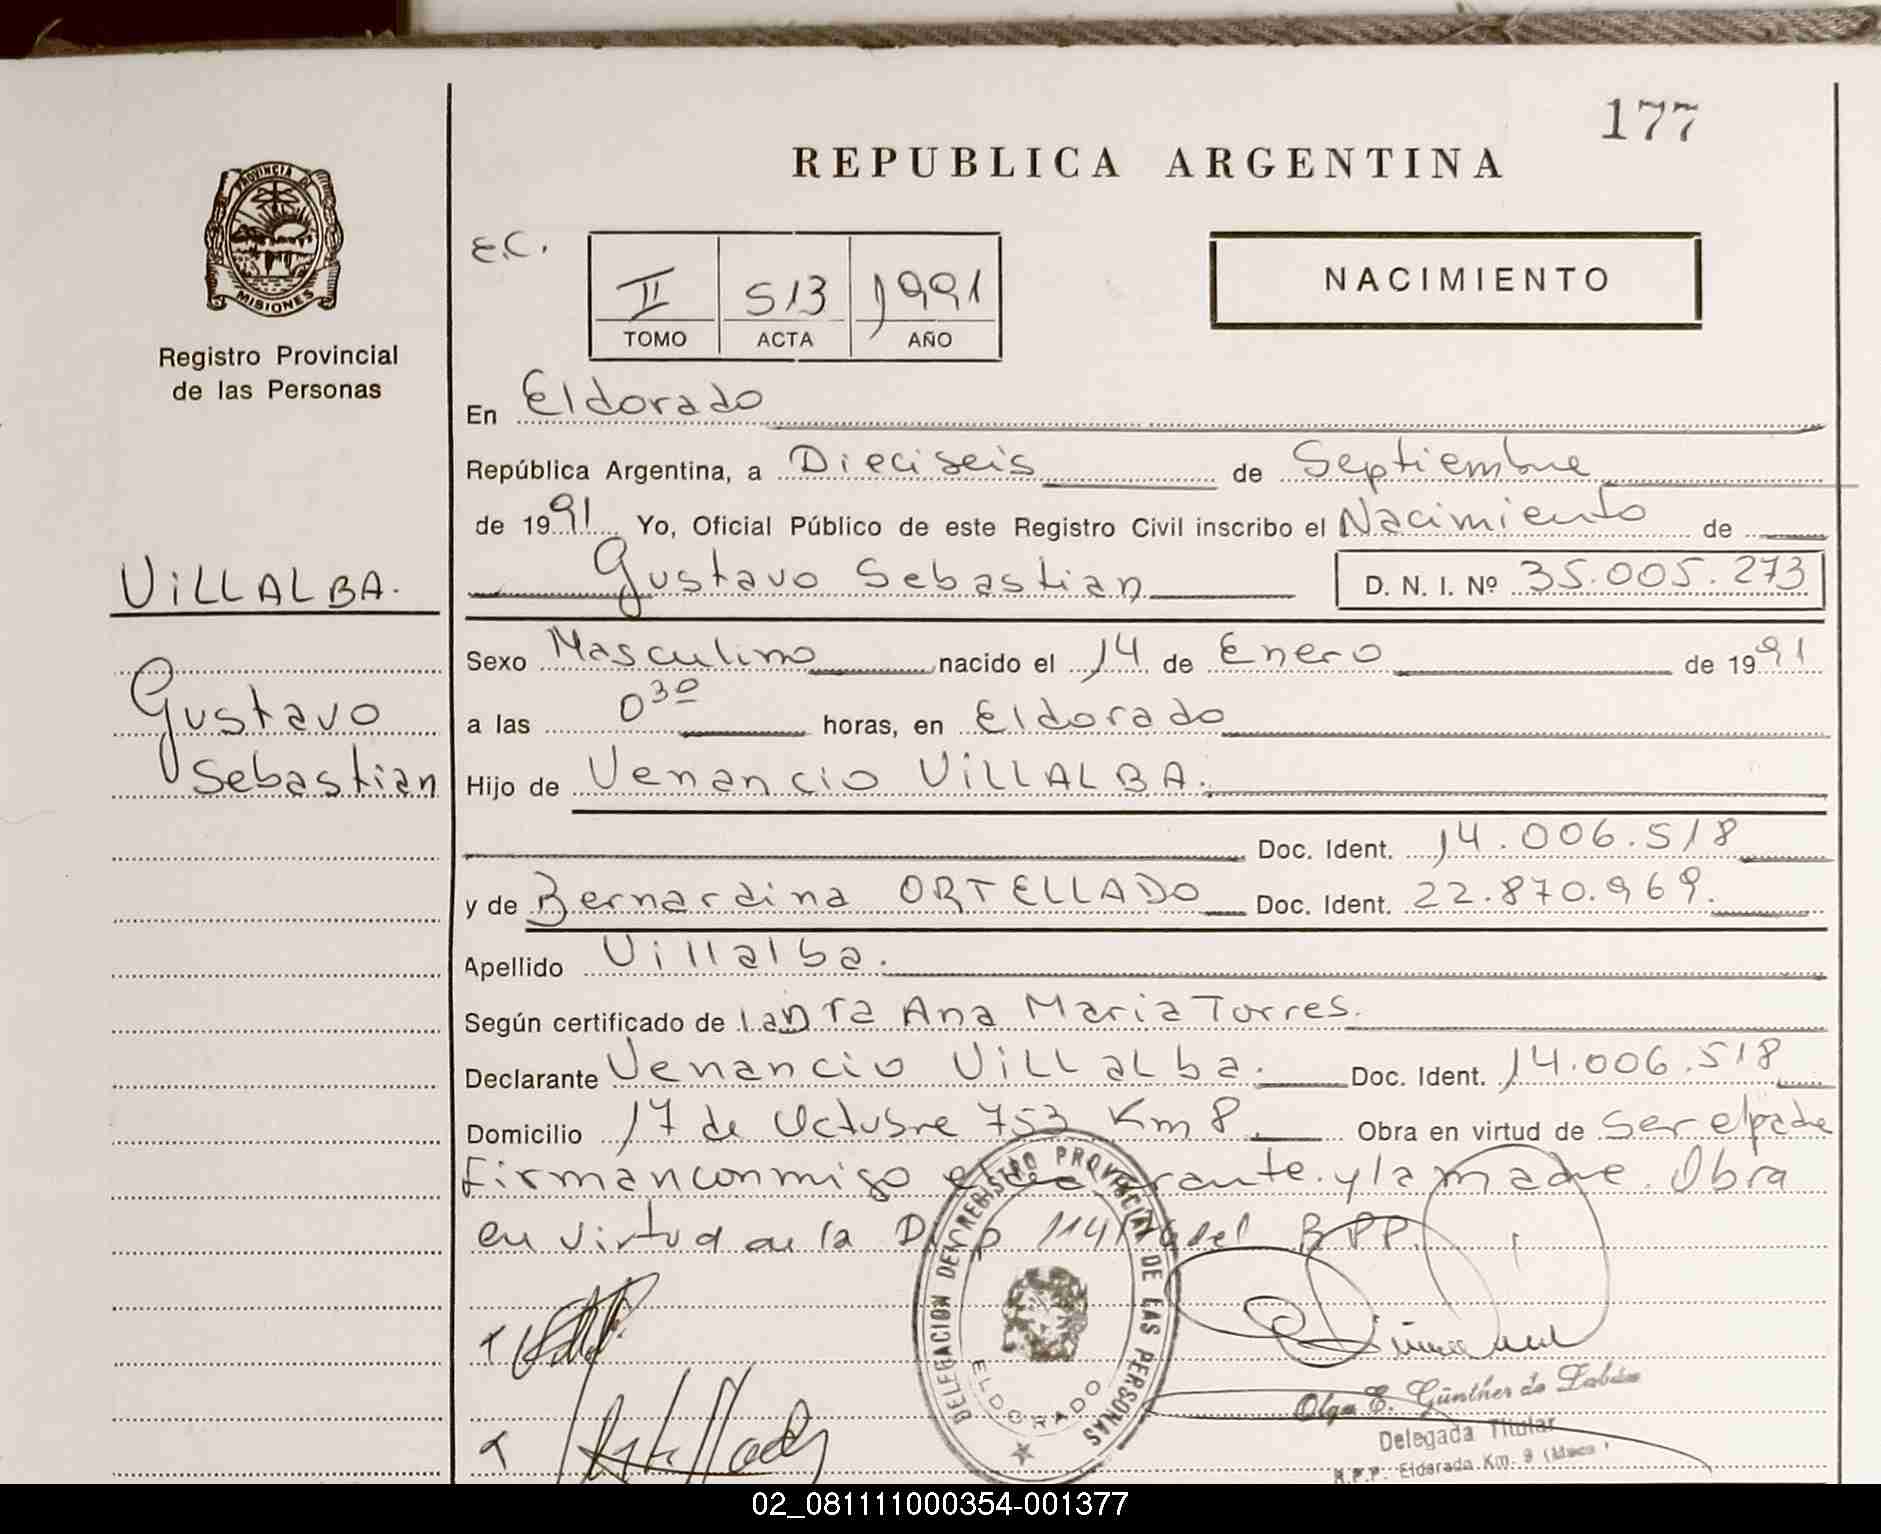 177
REPUBLICA ARGENTINA
PROVINCIA DE
MISIONES
Registro Provincial
de las Personas
E.C.
II 513 1991
TOMO ACTA AÑO
NACIMIENTO
En Eldorado
República Argentina, a Dieciseis de Septiembre
de 1991 Yo, Oficial Público de este Registro Civil inscribo el Nacimiento de
Gustavo Sebastian D. N. I. Nº 35.005.273
VILLALBA.
Gustavo
Sebastian
Sexo Masculino nacido el 14 de Enero de 1991
a las 0 30 horas, en Eldorado
Hijo de Venancio VILLALBA.
Doc. Ident. 14.006.518
y de Bernardina ORTELLADO Doc. Ident. 22.870.969.
Apellido Villalba.
Según certificado de Ana Maria Torres.
Declarante Venancio Villalba. Doc. Ident. 14.006.518
Domicilio 17 de Octubre 753 Km 8. Obra en virtud de ser el padre
Firman conmigo el y la madre. Obra
en virtud de la 114/76 del RPP.
DELEGACION DEL REGISTRO PROVINCIAL DE LAS PERSONAS
ELDORADO
Olga E. Günther de
Delegada Titular
R.P.P. Eldorado Km. 9
02_081111000354-001377